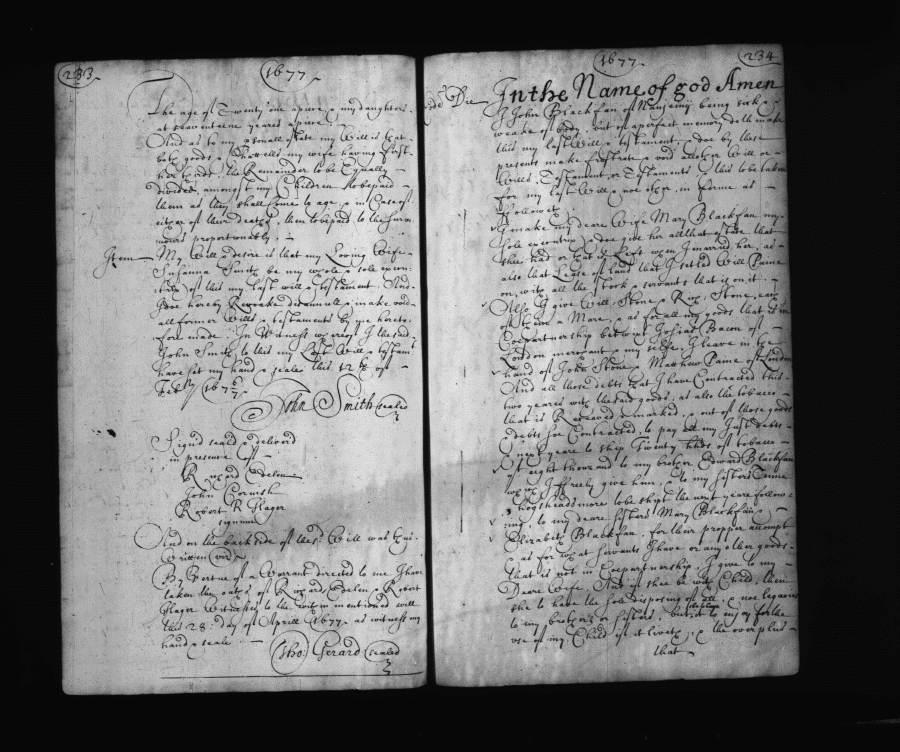 233
1677
The age of Twenty one a piece & my daughters
at seaventeene yeares a piece
And as to my psonall estate my Will is that
both goods & Chattells my wife haveing first
her third, the Remainder to be Equally
divided amongst my Children to be paid
them as they shall come to age, & in Case of
either of their deaths, then to be paid to the survi
vours proportionably.
Item My Will & desire is that my Loving Wife
Susanna Smith be my whole & sole execu
trix of this my last will & testament And
I doe hereby Revoake disannull & make void
all former Wills & testaments by me hereto
fore made. In Witness whereof I the said
John Smith to this my Last Will & testamt
have set my hand & seale this 12th of
Febry 1676/7
John Smith sealed
Signd seald & deliverd
in presence off
Richard Edelen
John Cornish
Robert R Slager
signum
And on the backside of the sd Will was thus
written (vizt)
By Vertue of a Warrant directed to me I have
taken the oaths of Richard Edelen & Robert
Slager Witnesses to the within mentioned will
this 28th day of Aprill 1677. as witness my
hand & seale
Tho: Gerard sealed
234
1677
eode Die In the Name of god Amen
I John Blackfan of being sick &
weake of body, but of a perfect memory doth make
this my last Will & testament, & doe by these
presents make frustrate & void all other Will or
Wills, Testament, or Testaments & this to be taken
for my last Will & noe other, in forme as
followeth
I make my deare Wife Mary Blackfan my
sole executrix, & doe give her all that estate that
shee had or that was left when I married her, as
also that Lease of land that I setled Will Paine
on, with all the stock & servants that is on it
Also I give Will: Stone & Rich: Stone, each
of them a Mare, & as for all my goods that is in
Coepartnership between Josias Bacon of
London merchant & my selfe, I leave in the
hand of John Stone & Mathew Paine of London
And all those debts that I have Contracted this
two yeares with the said goods, as also the tobacco
that is Received & marked, & out of those goods
& debts soe Contracted, to pay all my Just debts
next yeare to ship Twenty hhds of tobacco
of eight thousand to my brother Edward Blackfan
which I freely give him, & to my sisters Tenne
hogsheads more to be shipt the next yeare follow
ing, to my deare sisters Mary Blackfan &
Elizabeth Blackfan, for their propper
& as for what servants I have or any other goods
that is not in Coepartnership, I give to my
Deare Wife, And if shee be with Child, then
she to have the sole disposing of all, & noe legacies
to my brothers or sisters, but it to enjoy for the
use of my Child if it liveth, & the over plus
that